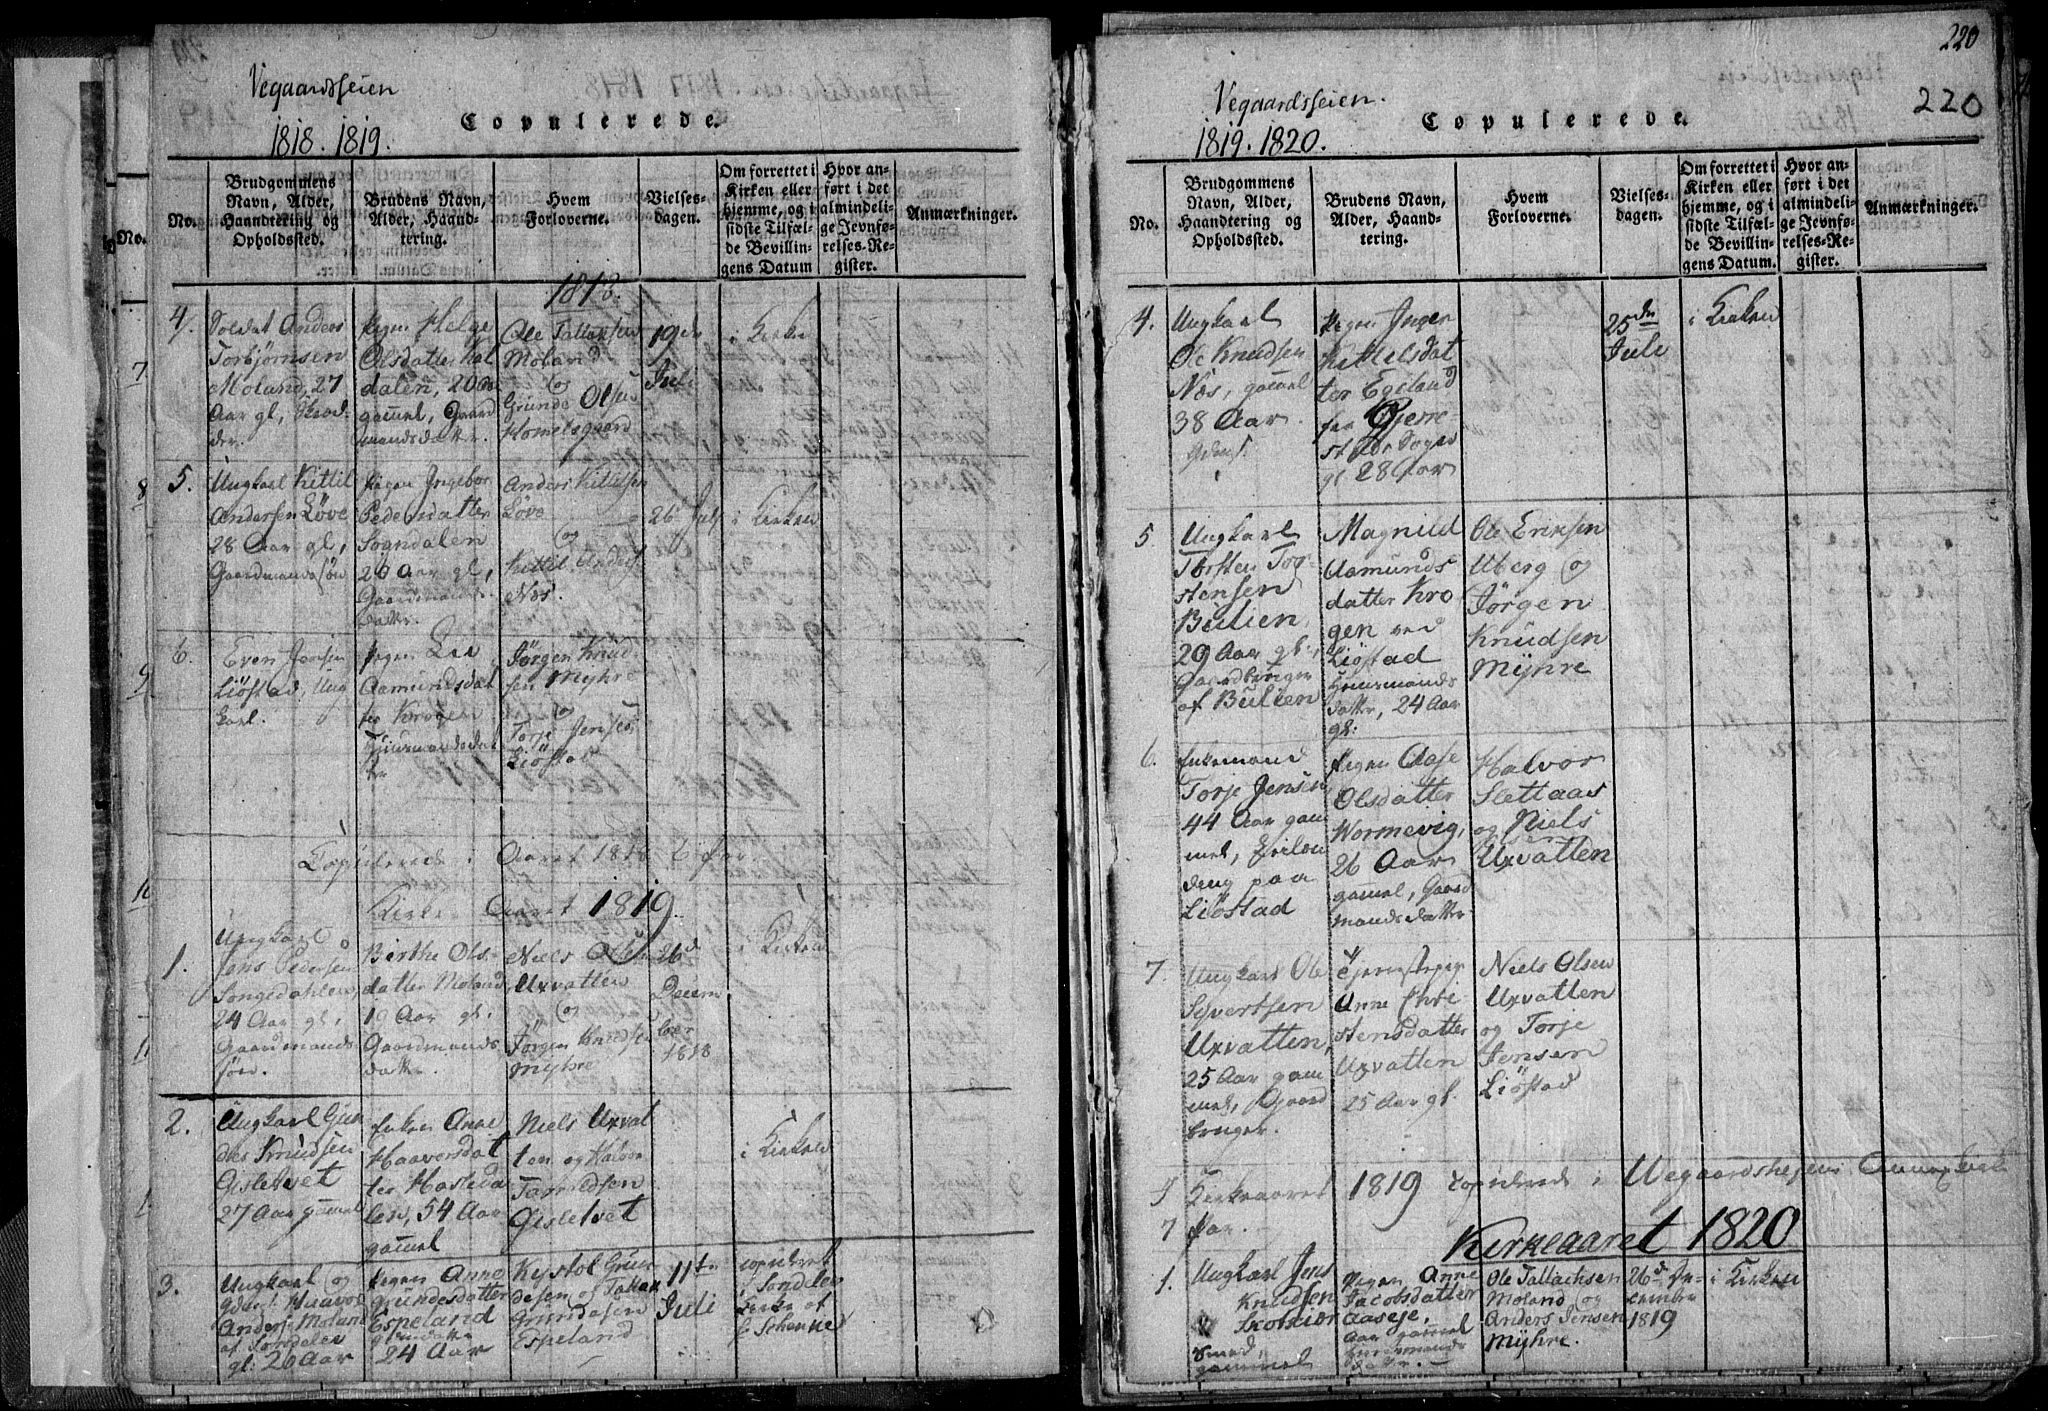 Vegaardsseien
1818. 1819.
Copulerede.
No.
Brudgommens
Navn, Alder,
Haandtering og
Opholdssted.
Brudens Navn,
Alder, Haand-
tering.
Hvem
Forloverne.
Vielses-
dagen.
Om forrettet i
Kirken eller
hjemme, og i
sidste Tilfæl-
de Bevillin-
gens Datum
Hvor an-
ført i det
almindeli-
ge Jevnfø-
relses-Re-
gister.
Anmærkninger.
1818.
4.
Soldat Anders
Torbjørnsen
Moland, 27
Aar gl,
Pigen Helge
Olsdatter
dalen, 20
gamel, Gaard
mandsdatter.
Ole Tallaksen
Moland
og
Grunde Olsen
Homelsgaard
19de
Juli
i Kirken
5.
Ungkarl Kittil
Andersen Løve
28 Aar gl,
Gaardmandssøn
Pigen Ingebor
Pedersdatter
Sogndalen
26 Aar gl,
Gaardmands
datter.
Anders Kittelsen
Løve
og
Kittil Anders
Næs.
26 Juli
i Kirken
6.
Even Jensen
Liøstad, Ung
karl.
Pigen Liv
Aamundsdat
ter Krogen
Huusmandsdat
ter
Jørgen Knud-
sen Myhre
og
Torje Jensen
Liøstad
Copulerede i Aaret 1818 6 par.
Kirke Aaret 1819.
1.
Ungkarl
Jens Pedersen
Songedahlen,
24 Aar gl,
Gaardmands
søn.
Birthe Ols-
datter Moland,
19 Aar gl,
Gaardmands
datter.
Niels Olsen
Uxvatten
og
Jørgen Knudsen
Myhre
26d
Decem
ber
1818
i Kirken
2.
Ungkarl Gun
der Knudsen
Gisletvet
27 Aar gamel
Enken Anne
Haavorsdat
ter Hasleda
len, 54 Aar
gamel
Niels Uxvat
ten og Halvor
Gisletvet
i Kirken
3.
Ungkarl og
Anders. Moland
af Sondeler
gl. 26 Aar
Pigen Anne
Grundesdatter
Espeland
24 Aar
Kystol Grun
desen og
Grundesen
Espeland
11te
Juli
copuleret
i Sondeler
Kirke af
220
220
Vegaardsseien.
1819. 1820.
Copulerede.
No.
Brudgommens
Navn, Alder,
Haandtering og
Opholdssted.
Brudens Navn,
Alder, Haand-
tering.
Hvem
Forloverne.
Vielses-
dagen.
Om forrettet i
Kirken eller
hjemme, og i
sidste Tilfæl-
de Bevillin-
gens Datum.
Hvor an-
ført i det
almindeli-
ge Jevnfø-
relses-Re-
gister.
Anmærkninger.
4.
Ungkarl
Ole Knudsen
Næs, gamel
38 Aar
Pigen Inger
Kittelsdat
ter Egeland
fra Gjerre-
stads Sogn
gl. 28 Aar
25de
Juli
i Kirken
5.
Ungkarl
Torsten Tor-
stensen
Bulien,
29 Aar gl.,
Gaardbruger
af Bulien
Magnild
Aamunds
datter Kro
gen ved
Liøstad
Huusmands
datter, 24 Aar
gl.
Ole Eriksen
Uberg og
Jørgen
Knudsen
Myhre
6.
Enkemand
Torje Jensen
44 Aar gam
mel,
paa
Liøstad
Pigen Aase
Olsdatter
Wormevig,
26 Aar
gamel, Gaard
mandsdatter.
Halvor
Slettaas
og Niels
Uxvatten
7.
Ungkarl Ole
Syvertsen
Uxvatten,
25 Aar gam
mel, Gaard
bruger.
Tjenestepige
Anne Chri
stensdatter
Uxvatten
25 Aar gl.
Niels Olsen
Uxvatten
og Torje
Jensen
Liøstad
I Kirkeaaret 1819 copulerede i Vegaardsheiens Annex
7 par.
Kirkeaaret 1820
1.
Ungkarl Jens
Knudsen
Smed,
gammel
Pigen Anne
Jacobsdatter
Aaseje,
Aar gammel
Huusmands
datter.
Ole Tallachsen
Moland og
Anders Jensen
Myhre.
26d De-
cembr
1819
i Kirken